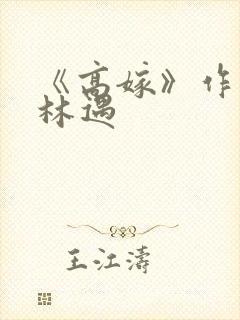 《高嫁》作
林遇
王江涛